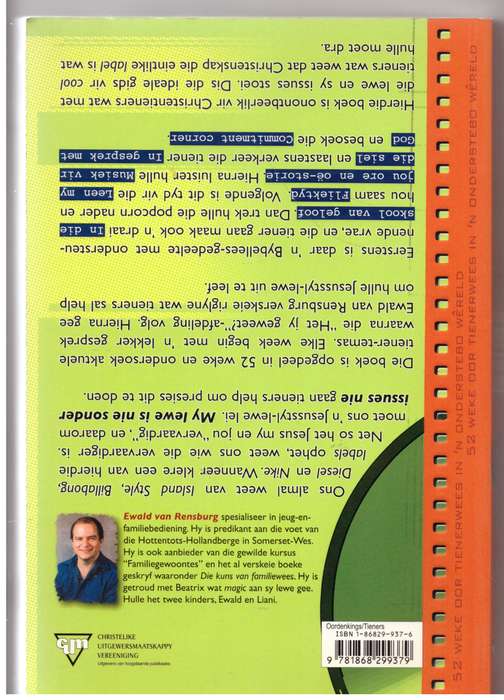 Ons almal weet van Island Style, Billabong,
Diesel en Nike. Wanneer klere een van hierdie
labels ophet, weet ons wie die vervaardiger is.
Net so het Jesus my en jou "vervaardig", en daarom
moet ons 'n Jesusstyl-lewe lei. My lewe is nie sonder
issues nie gaan tieners help om presies dit te doen.
Die boek is opgedeel in 52 weke en ondersoek aktuele
tiener-temas. Elke week begin met 'n lekker gesprek
waarna die "Het jy geweet?"-afdeling volg. Hierna gee
Ewald van Rensburg verskeie riglyne wat tieners sal help
om hulle Jesusstyl-lewe uit te leef.
Eerstens is daar 'n Bybellees-gedeelte met ondersteu-
nende vrae, en die tiener gaan maak ook 'n draai In die
skool van geloof. Dan trek hulle die popcorn nader en
hou saam Fliektyd. Volgende is dit tyd vir die Leen my
jou ore en oë-storie. Hierna luister hulle Musiek vir
die siel en laastens verkeer die tiener In gesprek met
God en besoek die Commitment corner.
Hierdie boek is onontbeerlik vir Christentieners wat met
die lewe en sy issues stoei. Dis die ideale gids vir cool
tieners wat weet dat Christenskap die eintlike label is wat
hulle moet dra.
Ewald van Rensburg spesialiseer in jeug-en-
familiebediening. Hy is predikant aan die voet van
die Hottentots-Hollandberge in Somerset-Wes.
Hy is ook aanbieder van die gewilde kursus
"Familiegewoontes" en het al verskeie boeke
geskryf waaronder Die kuns van familiewees. Hy is
getroud met Beatrix wat magic aan sy lewe gee.
Hulle het twee kinders, Ewald en Liani.
cum
CHRISTELIKE
UITGEWERSMAATSKAPPY
VEREENIGING
Uitgewers van hoogstaande publikasies
Oordenkings/Tieners
ISBN 1-86829-937-6
9 781868 299379
52 WEKE OOR TIENERWEES IN 'N ONDERSTEBO WÊRELD
52 WEKE OOR TIENERWEES IN 'N ONDERSTEBO WÊRELD